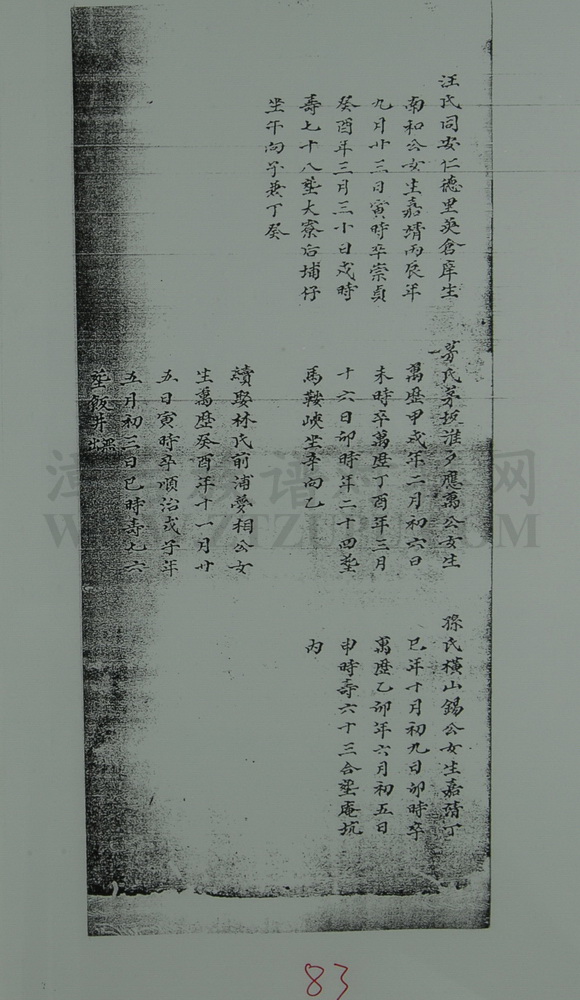 汪氏同安仁德里英倉庠生
南和公女生嘉靖丙辰年
九月廿三日寅時卒崇貞
癸酉年三月三十日戌時
壽七十八塟大寮后埔仔
坐午向子兼丁癸
芳氏茅坂淮夕應萬公女生
萬歷甲戌年二月初六日
未時卒萬歷丁酉年三月
十六日卯時年二十四塟
馬鞍峽坐辛向乙
續娶林氏前浦夢相公女
生萬歷癸酉年十一月廿
五日寅時卒順治戊子年
五月初三日巳時壽七六
塟飯井
孫氏橫山錫公女生嘉靖丁
巳年十月初九日卯時卒
萬歷乙卯年六月初五日
申時壽六十三合塟庵坑
內
WWW.ZTZUPU.COM
83